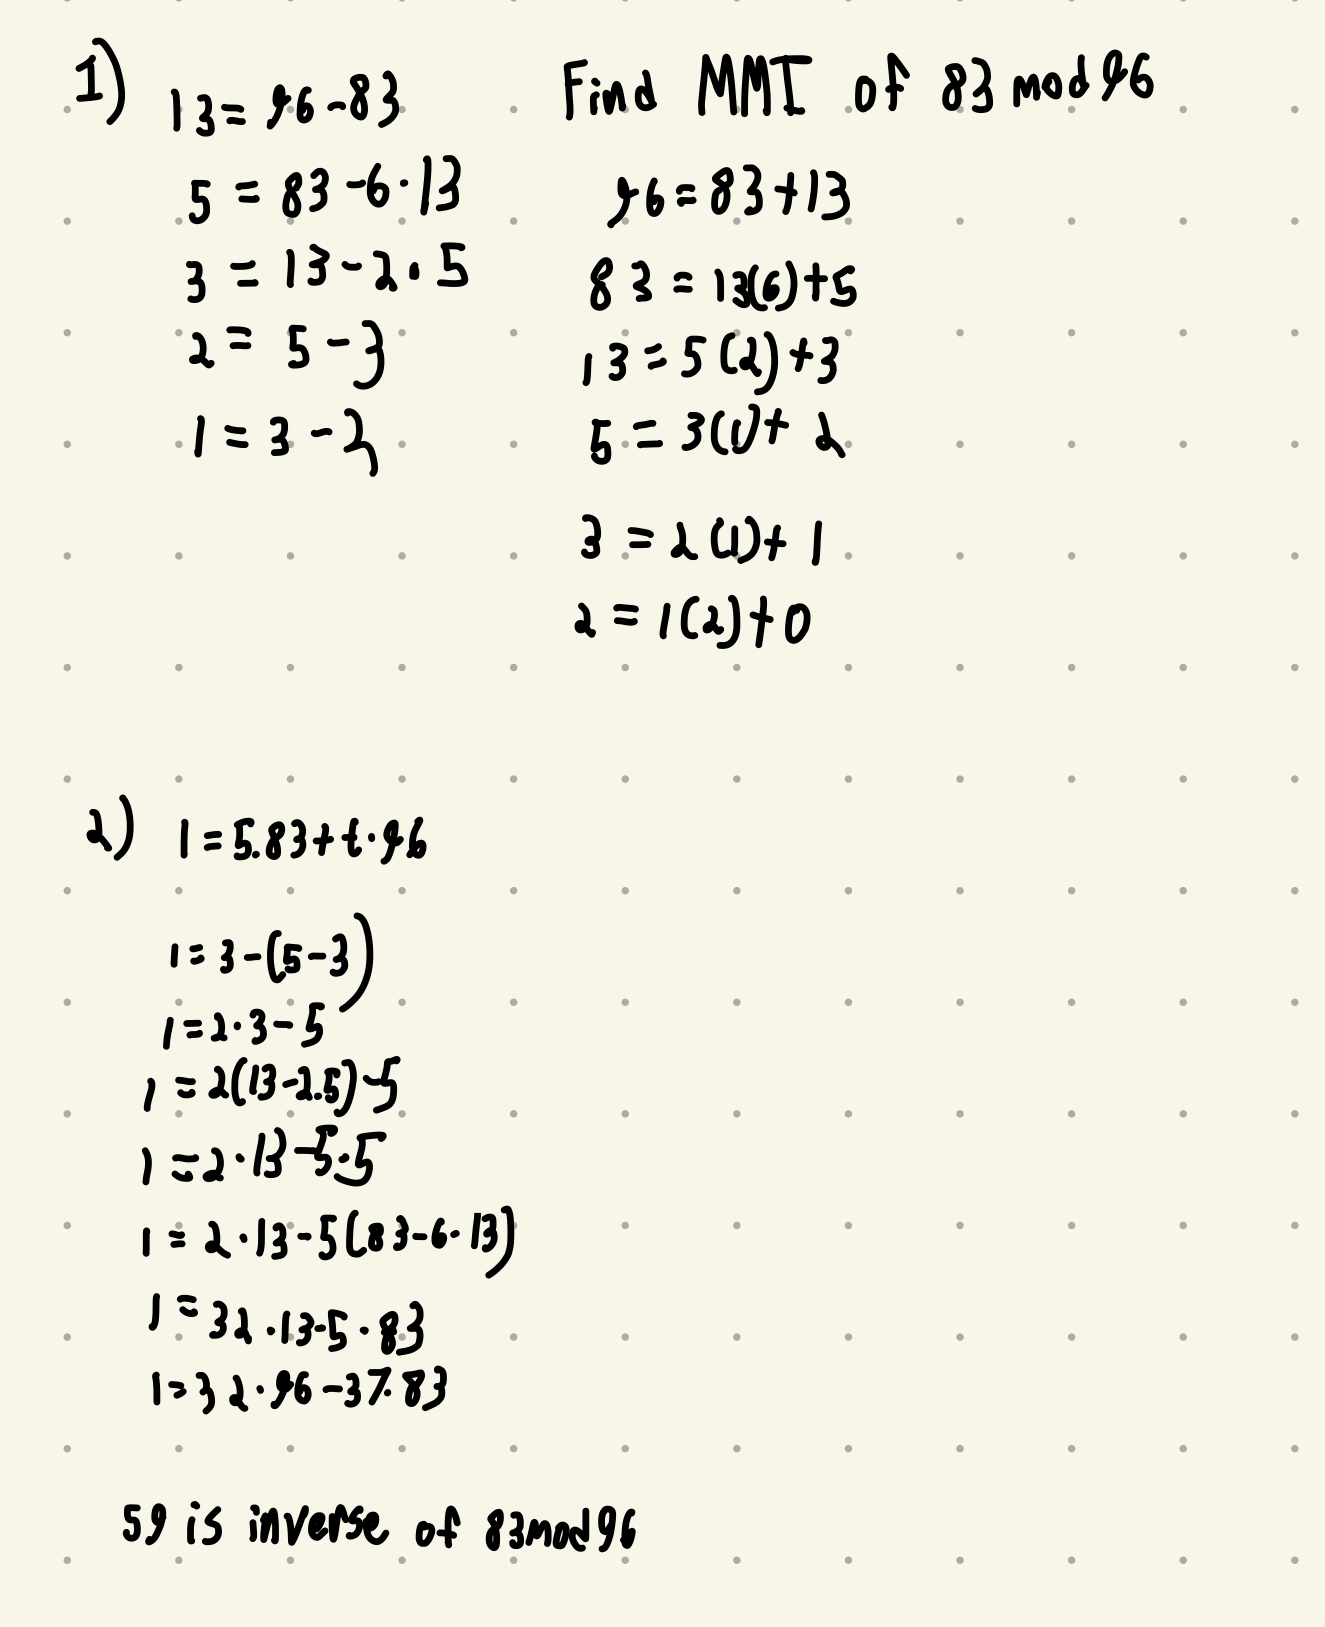 1)
13 = 96 - 83
5 = 83 - 6 · 13
3 = 13 - 2 · 5
2 = 5 - 3
1 = 3 - 2
Find MMI of 83 mod 96
96 = 83 + 13
83 = 13(6) + 5
13 = 5(2) + 3
5 = 3(1) + 2
3 = 2(1) + 1
2 = 1(2) + 0
2) 1 = 5.83 + t · 96
1 = 3 - (5 - 3)
1 = 2 · 3 - 5
1 = 2(13 - 2.5) - 5
1 = 2 · 13 - 5 · 5
1 = 2 · 13 - 5(83 - 6 · 13)
1 = 32 · 13 - 5 · 83
1 = 32 · 96 - 37 · 83
59 is inverse of 83 mod 96